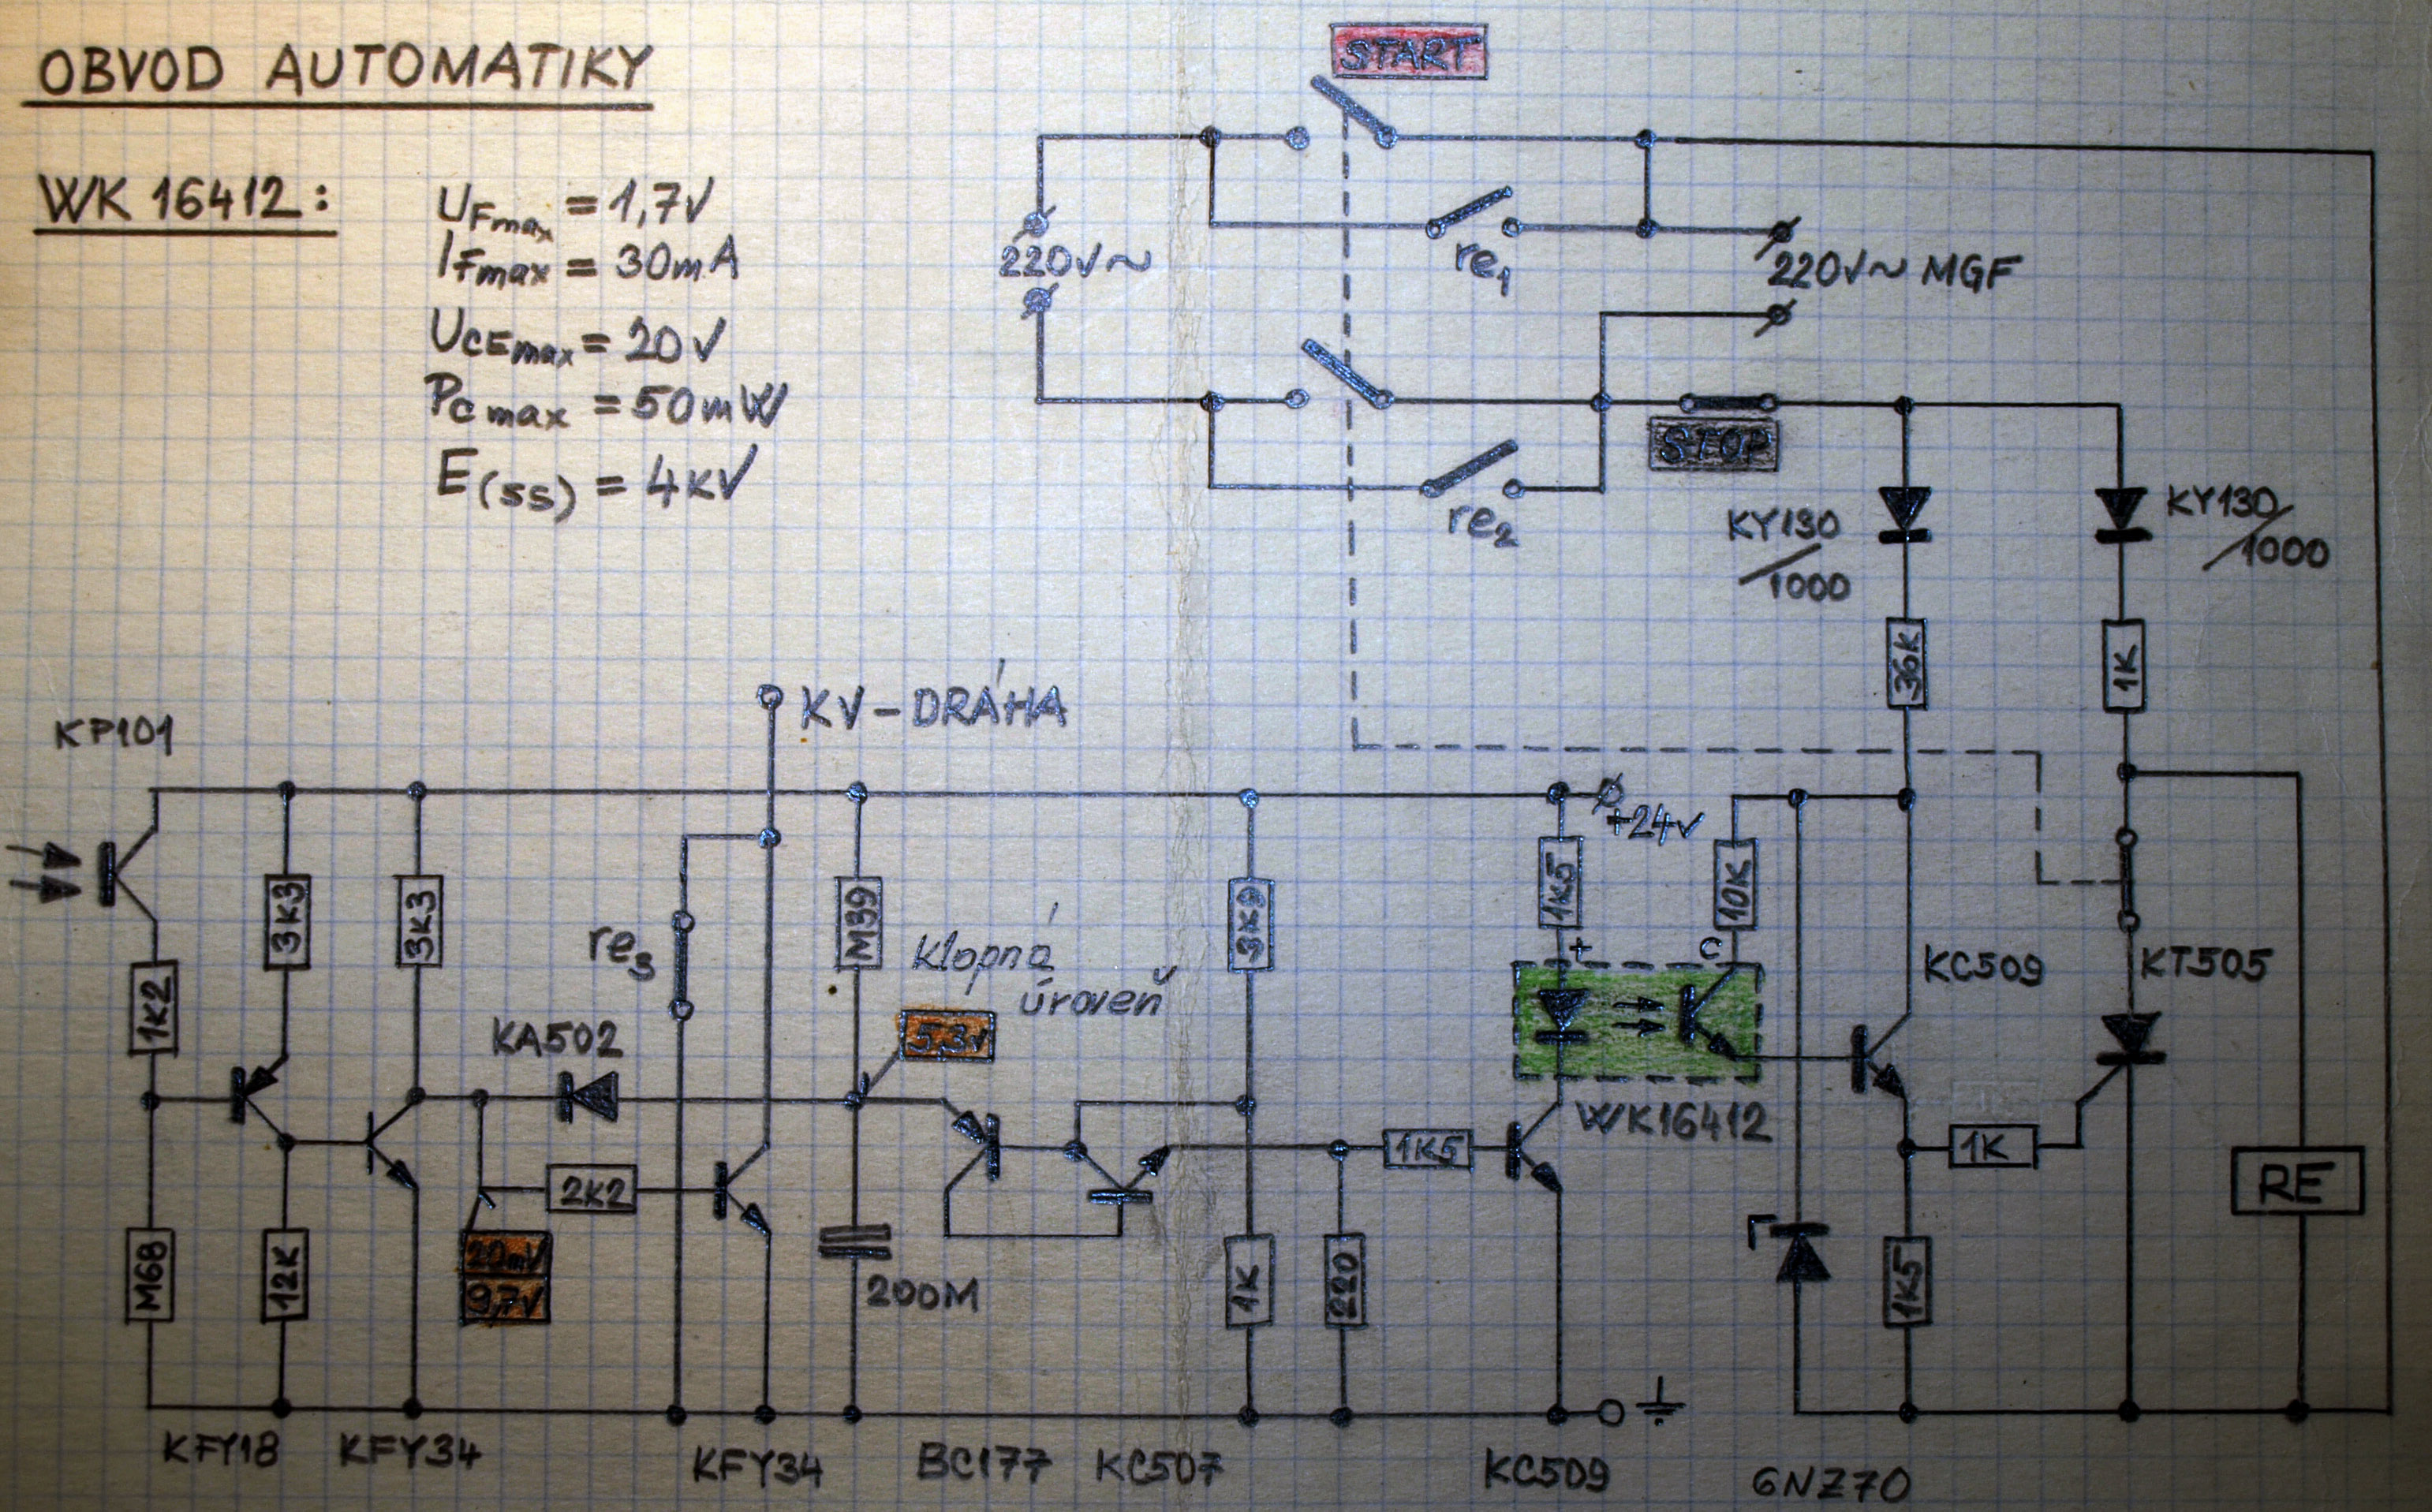 OBVOD AUTOMATIKY
WK 16412:
UFmax = 1,7V
IFmax = 30mA
UCEmax = 20V
PCmax = 50mW
E(ss) = 4kV
START
220V~
re1
220V~ MGF
STOP
re2
KY130/1000
KY130/1000
36K
1K
KV-DRÁHA
KP101
+24V
3K3
3K3
re3
M39
Klopná
úroveň
5,3V
3K9
1K5
10K
+
C
KC509
KT505
1K2
KA502
WK16412
1K5
1K
2K2
RE
M68
12K
20mV
9,7V
200M
1K
220
1K5
KFY18
KFY34
KFY34
BC177
KC507
KC509
6NZ70